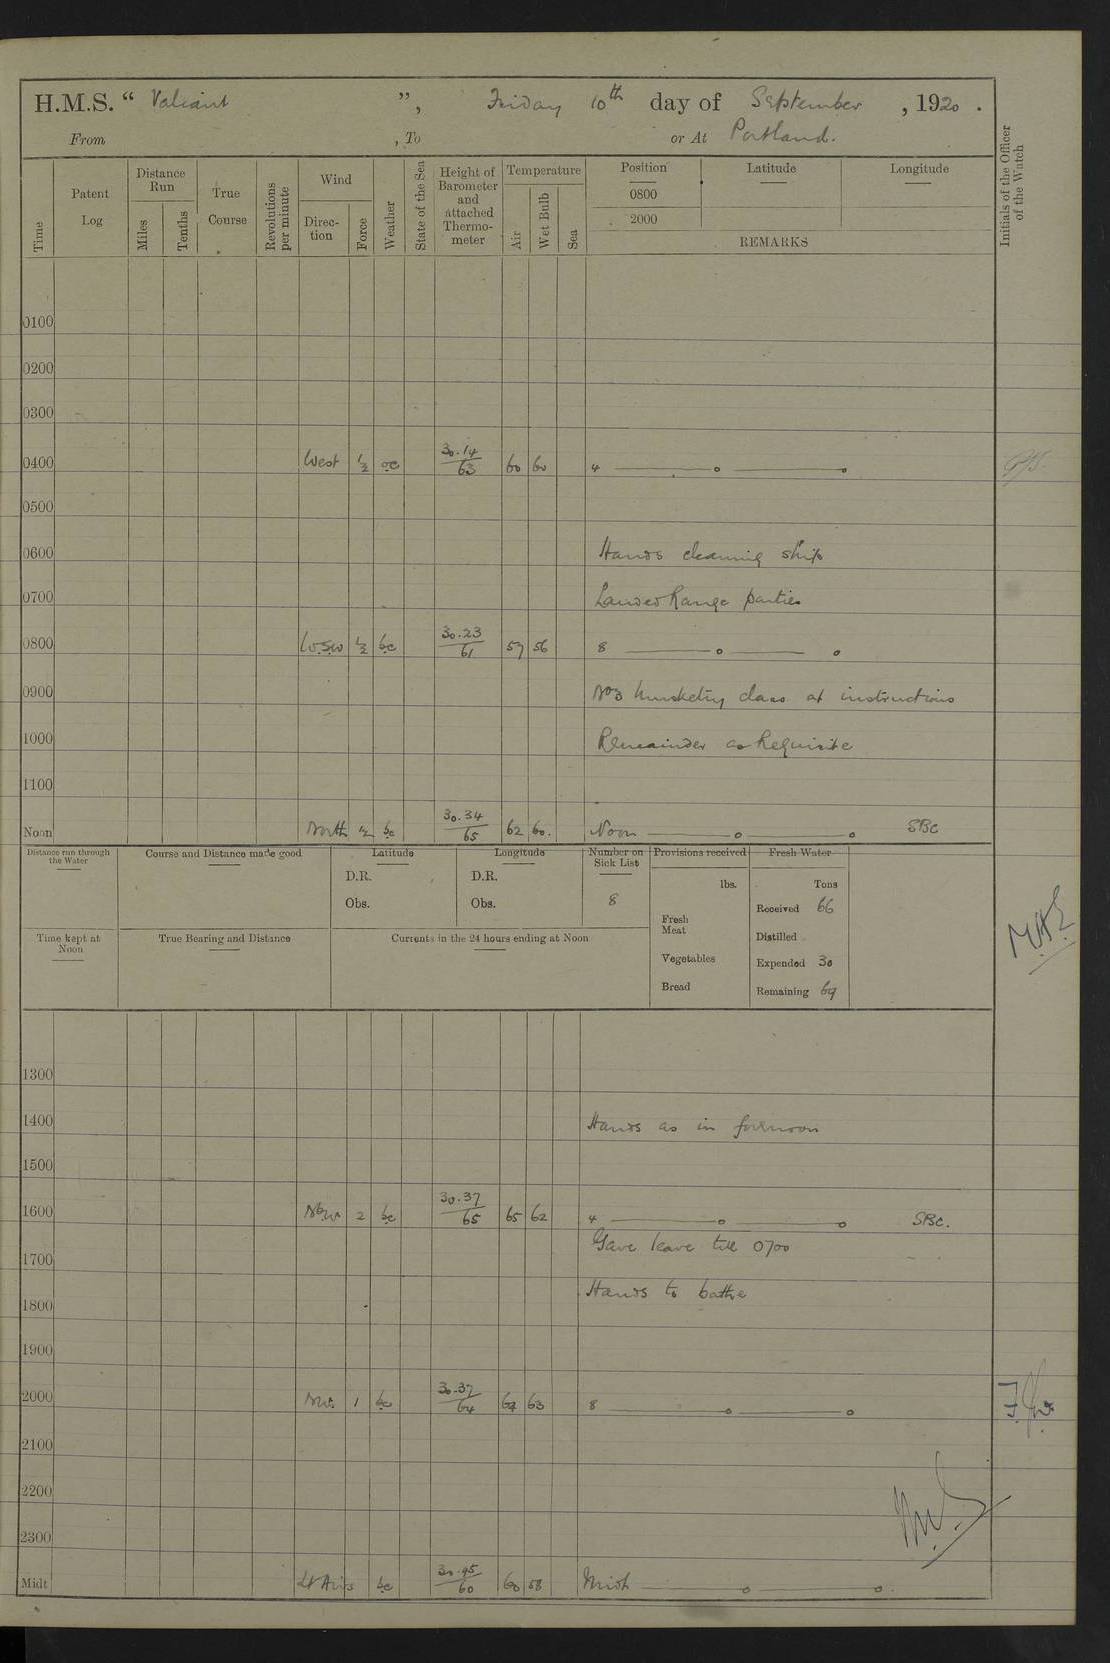 H.M.S. " Valiant ", Friday 10th day of September, 1920.
From , To or At Portland.
Time
Patent Log
Distance Run
Miles
Tenths
True Course
Revolutions per minute
Wind
Direction
Force
Weather
State of the Sea
Height of Barometer and attached Thermometer
Temperature
Air
Wet Bulb
Sea
Position Latitude Longitude
0800
2000
REMARKS
Initials of the Officer of the Watch
0100
0200
0300
0400 West ½ oc 30.14/63 60 60 4
0500
0600 Hands cleaning ship
0700 Landed Range parties
0800 WSW ½ bc 30.23/61 57 56 8
0900 No3 Musketry class at instructions
1000 Remainder as Requisite
1100
Noon North ½ bc 30.34/65 62 60. Noon SBC
Distance run through the Water
Course and Distance made good
Latitude
D.R.
Obs.
Longitude
D.R.
Obs.
Number on Sick List
8
Provisions received
lbs.
Fresh Meat
Vegetables
Bread
Fresh Water
Tons
Received 66
Distilled
Expended 30
Remaining
Time kept at Noon
True Bearing and Distance
Currents in the 24 hours ending at Noon
1300
1400 Hands as in forenoon
1500
1600 NbW 2 bc 30.37/65 65 62 4 SBC.
Gave leave till 0700
1700
Hands to bathe
1800
1900
2000 NW. 1 bc 30.37/64 63 8
2100
2200
2300
Midt Lt Airs bc 30.45/60 60 58 Midt